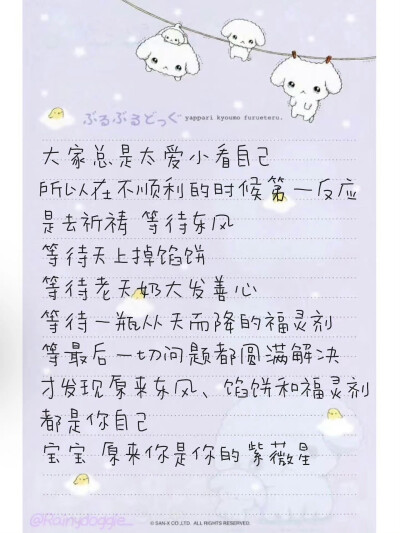 ぶるぶるどっぐ
yappari kyoumo furueteru.
大家总是太爱小看自己
所以在不顺利的时候第一反应
是去祈祷 等待东风
等待天上掉馅饼
等待老天奶大发善心
等待一瓶从天而降的福灵剂
等最后一切问题都圆满解决
才发现原来东风、馅饼和福灵剂
都是你自己
宝宝 原来你是你的紫薇星
@Rainydoggie_
© SAN-X CO.,LTD. ALL RIGHTS RESERVED.